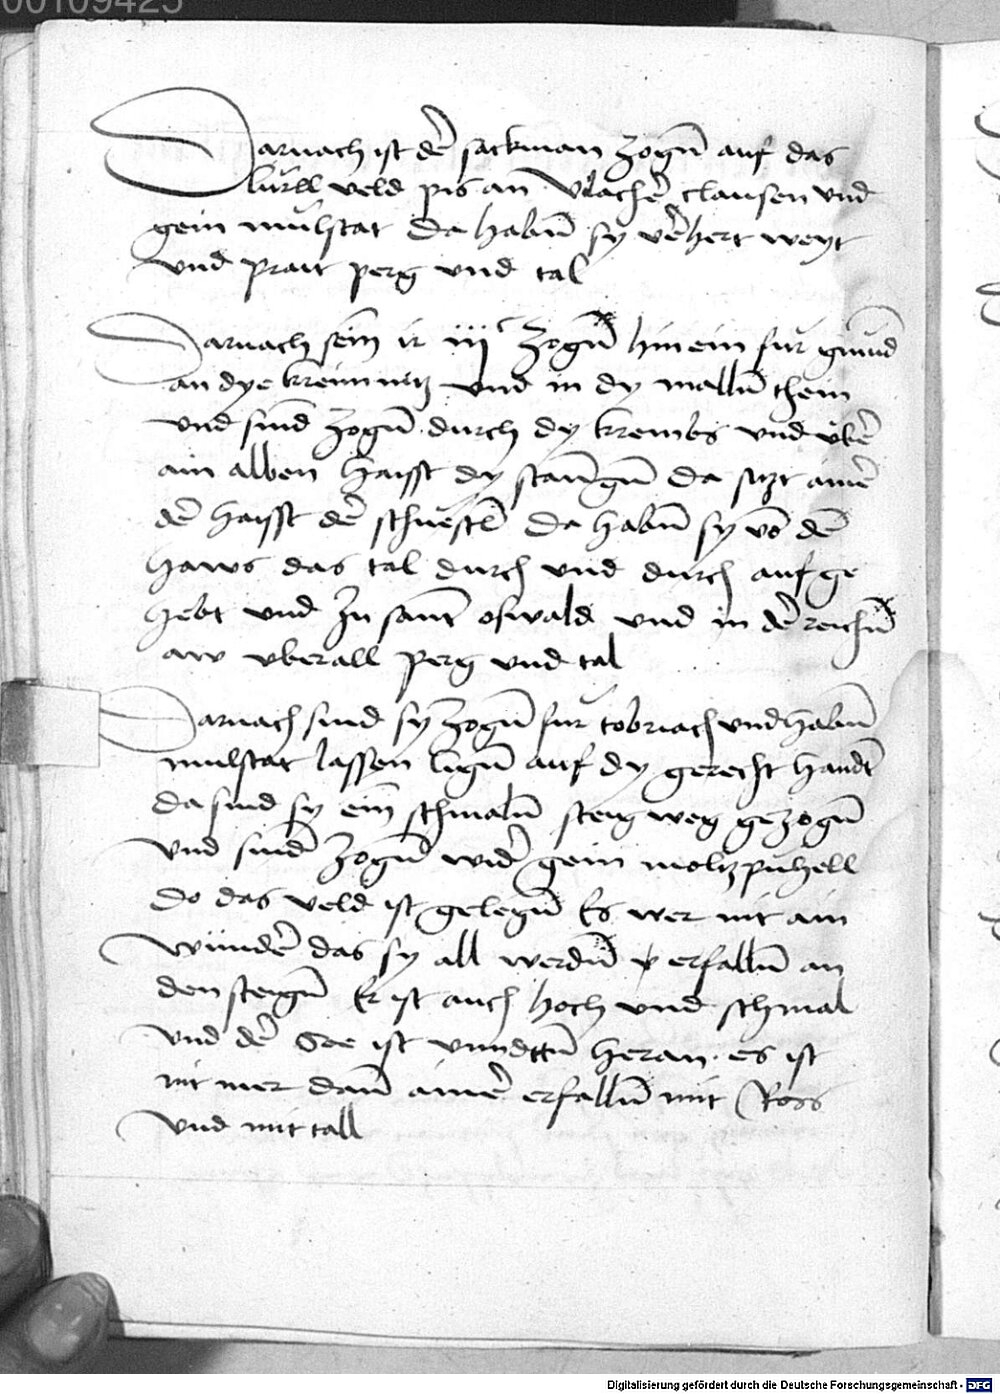 00109425
Darnach ist der̄ sackman zogn̄ auf das
lurll veld pis an Vilachē clausen vnd
gein mulstat da habn̄ sy vērhert weyt
vnd prait perg vnd tal
Darnach sein ir iijc zogn̄ hin ein fur gmund
an dye kreinnitz vnd in dy malln̄ thein
vnd sind zogn̄ durch dy krembs vnd vbē
ain alben haisst dy stangn̄ da sitzt ainē
dē haisst dē schuestl̄ da habn̄ sy vō dē
haws das tal durch vnd durch auf ge
hebt vnd zu sant oswald vnd in dē reichn̄
aw vberall perg vnd tal
Darnach sind sy zogn̄ fur tobriach vnd habn̄
mulstat lassen lign̄ auf dy gerecht handt
da sind sy ein̄ schmaln̄ steig weg gezogn̄
vnd sind zogn̄ widē gein moltzpuhell
do das veld ist gelegn̄ Es wer nit ain
wundē das sy all werdn̄ erfalln̄ an
den steign̄ Er ist auch hoch vnd schmal
vnd dē See ist vnndttn̄ heran es ist
nit mer dan̄ ainē erfalln̄ mit Ross
vnd mit tall
Digitalisierung gefördert durch die Deutsche Forschungsgemeinschaft - DFG